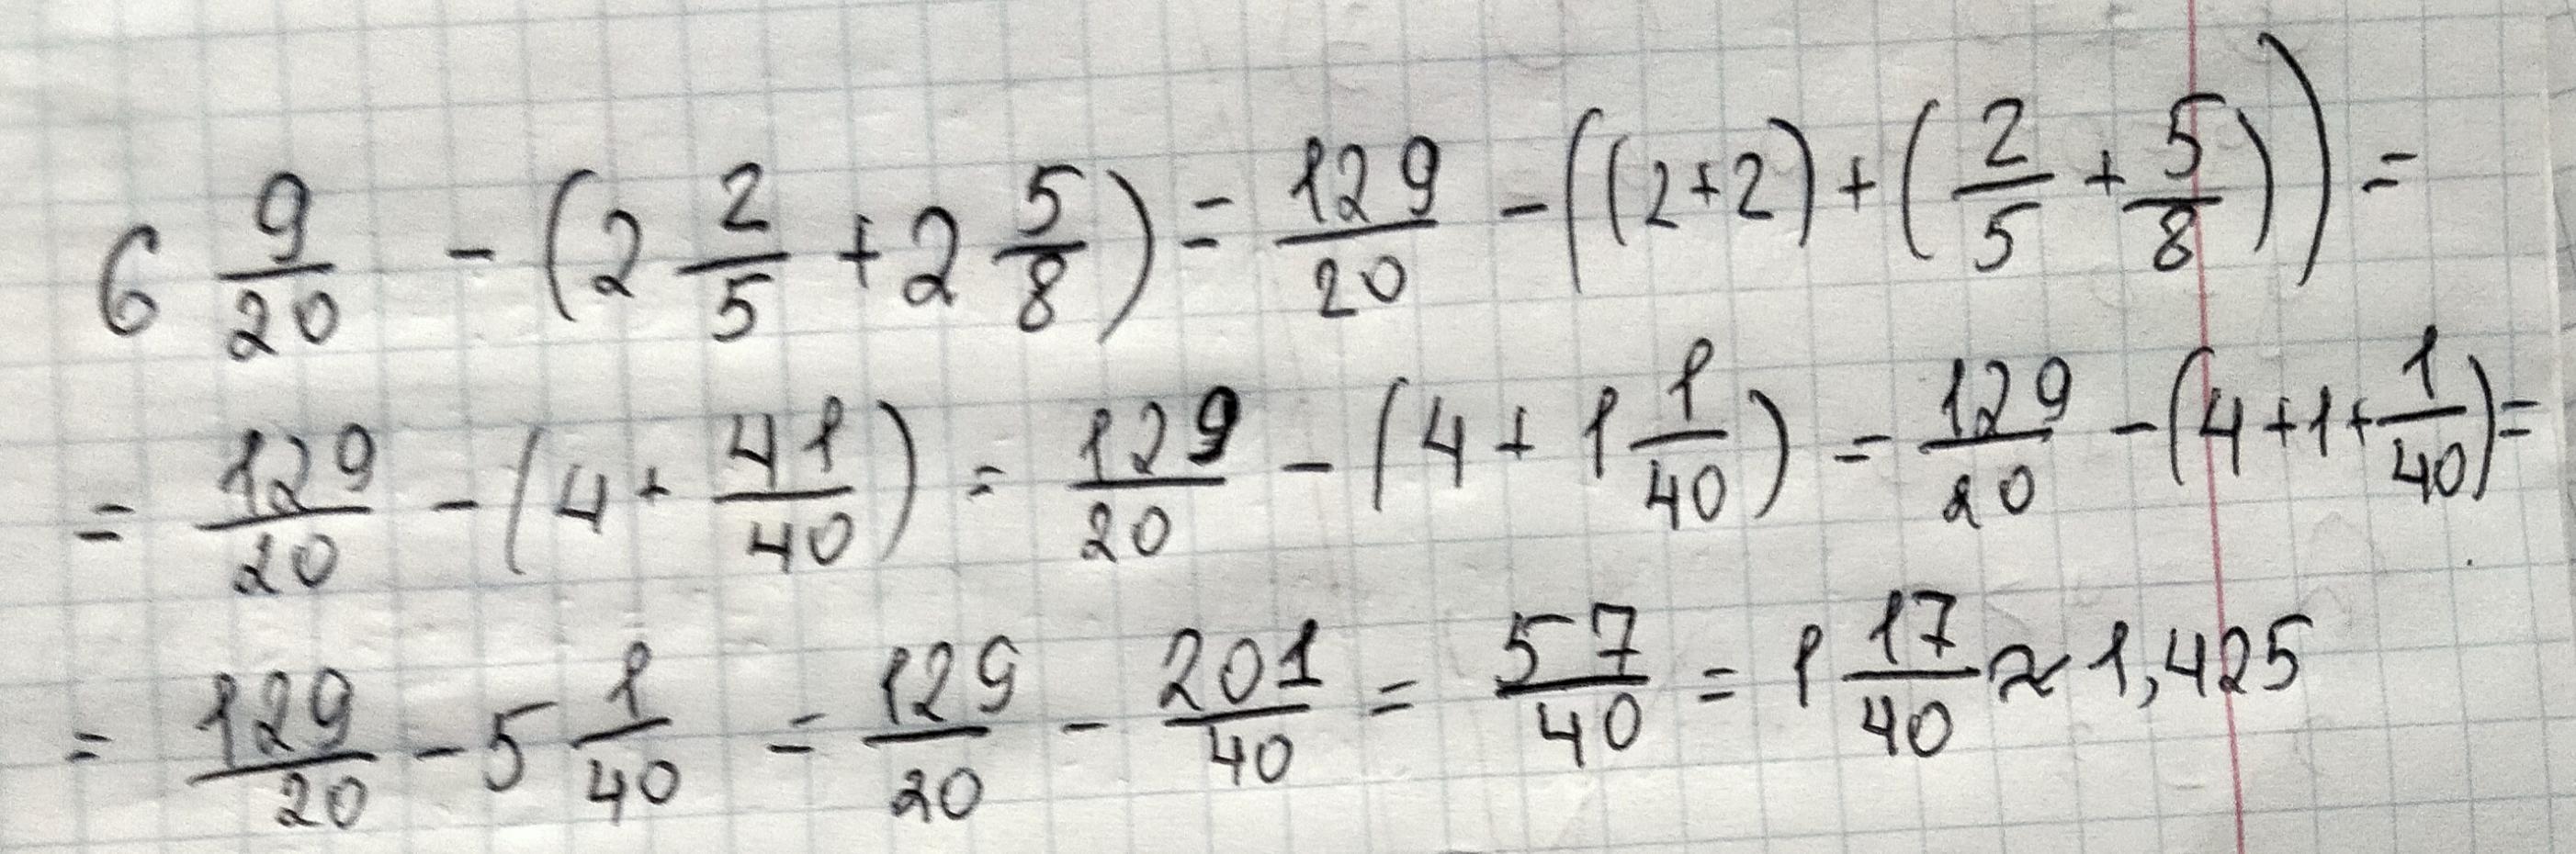 6 9/20 - (2 2/5 + 2 5/8) = 129/20 - ((2+2) + (2/5 + 5/8)) =
= 129/20 - (4 + 41/40) = 129/20 - (4 + 1 1/40) = 129/20 - (4 + 1 + 1/40) =
= 129/20 - 5 1/40 = 129/20 - 201/40 = 57/40 = 1 17/40 ≈ 1,425